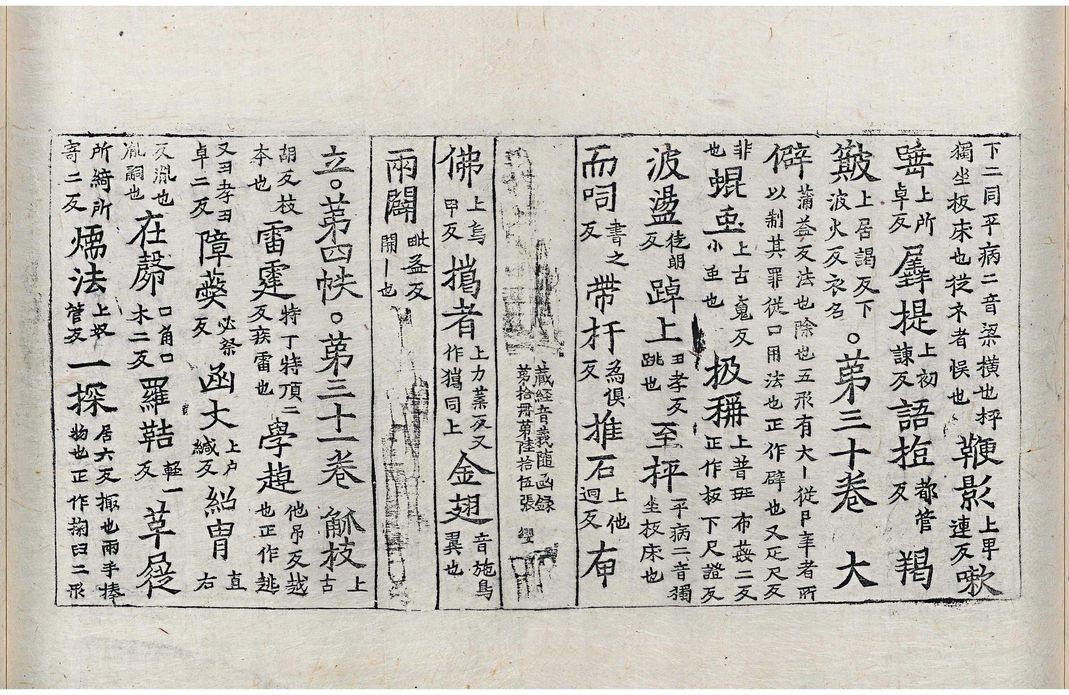 下二同平病二音梁横也枰
獨坐板床也從木者悞也 鞭影 上卑連反 嗽
上所卓反 羼提 上初諫反 語 都管反 羯
上居謁反下波火反衣名 。第三十卷 大
僻 蒲益反法也除也五形有大丨從卩辛者所
以制其罪從口用法也正作辟也又疋尺反
非也 蜫䖝 上古䰟反小䖝也 扱稱 上普班布莪二反正作板下尺證反
波盪 徒朗反 踔上 丑孝反跳也 至枰 平病二音獨坐板床也
而呞 書之反 帶杅 為俱反 堆石 上他迴反 有
藏經音義隨函録
第拾冊第陸拾伍張
佛 上烏甲反 㩉者 上力葉反又作獵同上 金翅 音施鳥翼也
兩闢 毗益反開丨也
立。第四帙。第三十一卷 觚枝 上古
胡反枝夲也 雷霆 特丁特頂二反疾雷也 學趠 他吊反越也正作趒
又丑孝丑卓二反 障蔽 必祭反 函大 上户緘反 紹胄 直右
反胤也胤嗣也 在 口角口木二反 羅鞊 輕一反 草屣
所綺所寄二反 㷼法 上奴管反 一探 居六反掬也兩手捧物也正作匊臼二形